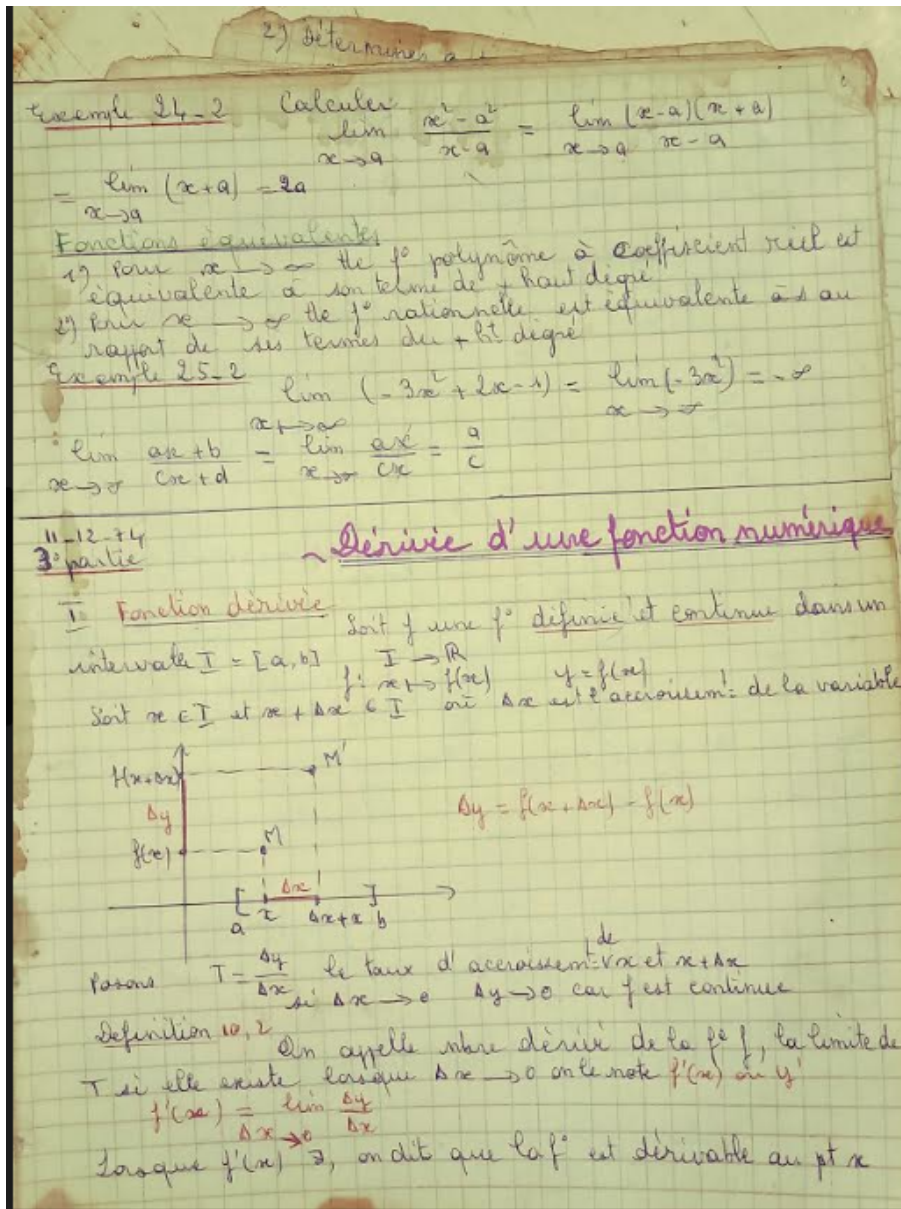 2) Déterminer a
Exemple 24-2 Calculer
lim x→a (x² - a²)/(x-a) = lim x→a (x-a)(x+a)/(x-a)
= lim x→a (x+a) = 2a
Fonctions équivalentes
1) Pour x → ∞ tte f° polynôme à coeffiscient réel est
équivalente à son terme de + haut dégré
2) Pour x → ∞ tte f° rationnelle est équivalente à s au
rapport de ses termes du + ht dégré
Exemple 25-2
lim x→∞ (-3x² + 2x - 1) = lim x→∞ (-3x²) = -∞
lim x→∞ (ax+b)/(cx+d) = lim x→∞ ax/cx = a/c
11-12-74
3° partie
~ Dérivée d'une fonction numérique
I Fonction dérivée
Soit f une f° définie et continue dans un
intervalle I = [a,b] I → R
f: x ↦ f(x) y = f(x)
Soit x ∈ I et x + Δx ∈ I où Δx est l'accroissemt de la variable
f(x+Δx)
M'
Δy
Δy = f(x+Δx) - f(x)
f(x)
M
Δx
a x Δx+x b
Posons T = Δy/Δx le taux d'accroissemt de f de x et x+Δx
si Δx → 0 Δy → 0 car f est continue
Définition 10,2
On appelle nbre dérivé de la f° f, la limite de
T si elle existe lorsque Δx → 0 on le note f'(x) où y'
f'(x) = lim Δx→0 Δy/Δx
Lorsque f'(x) ∃, on dit que la f° est dérivable au pt x